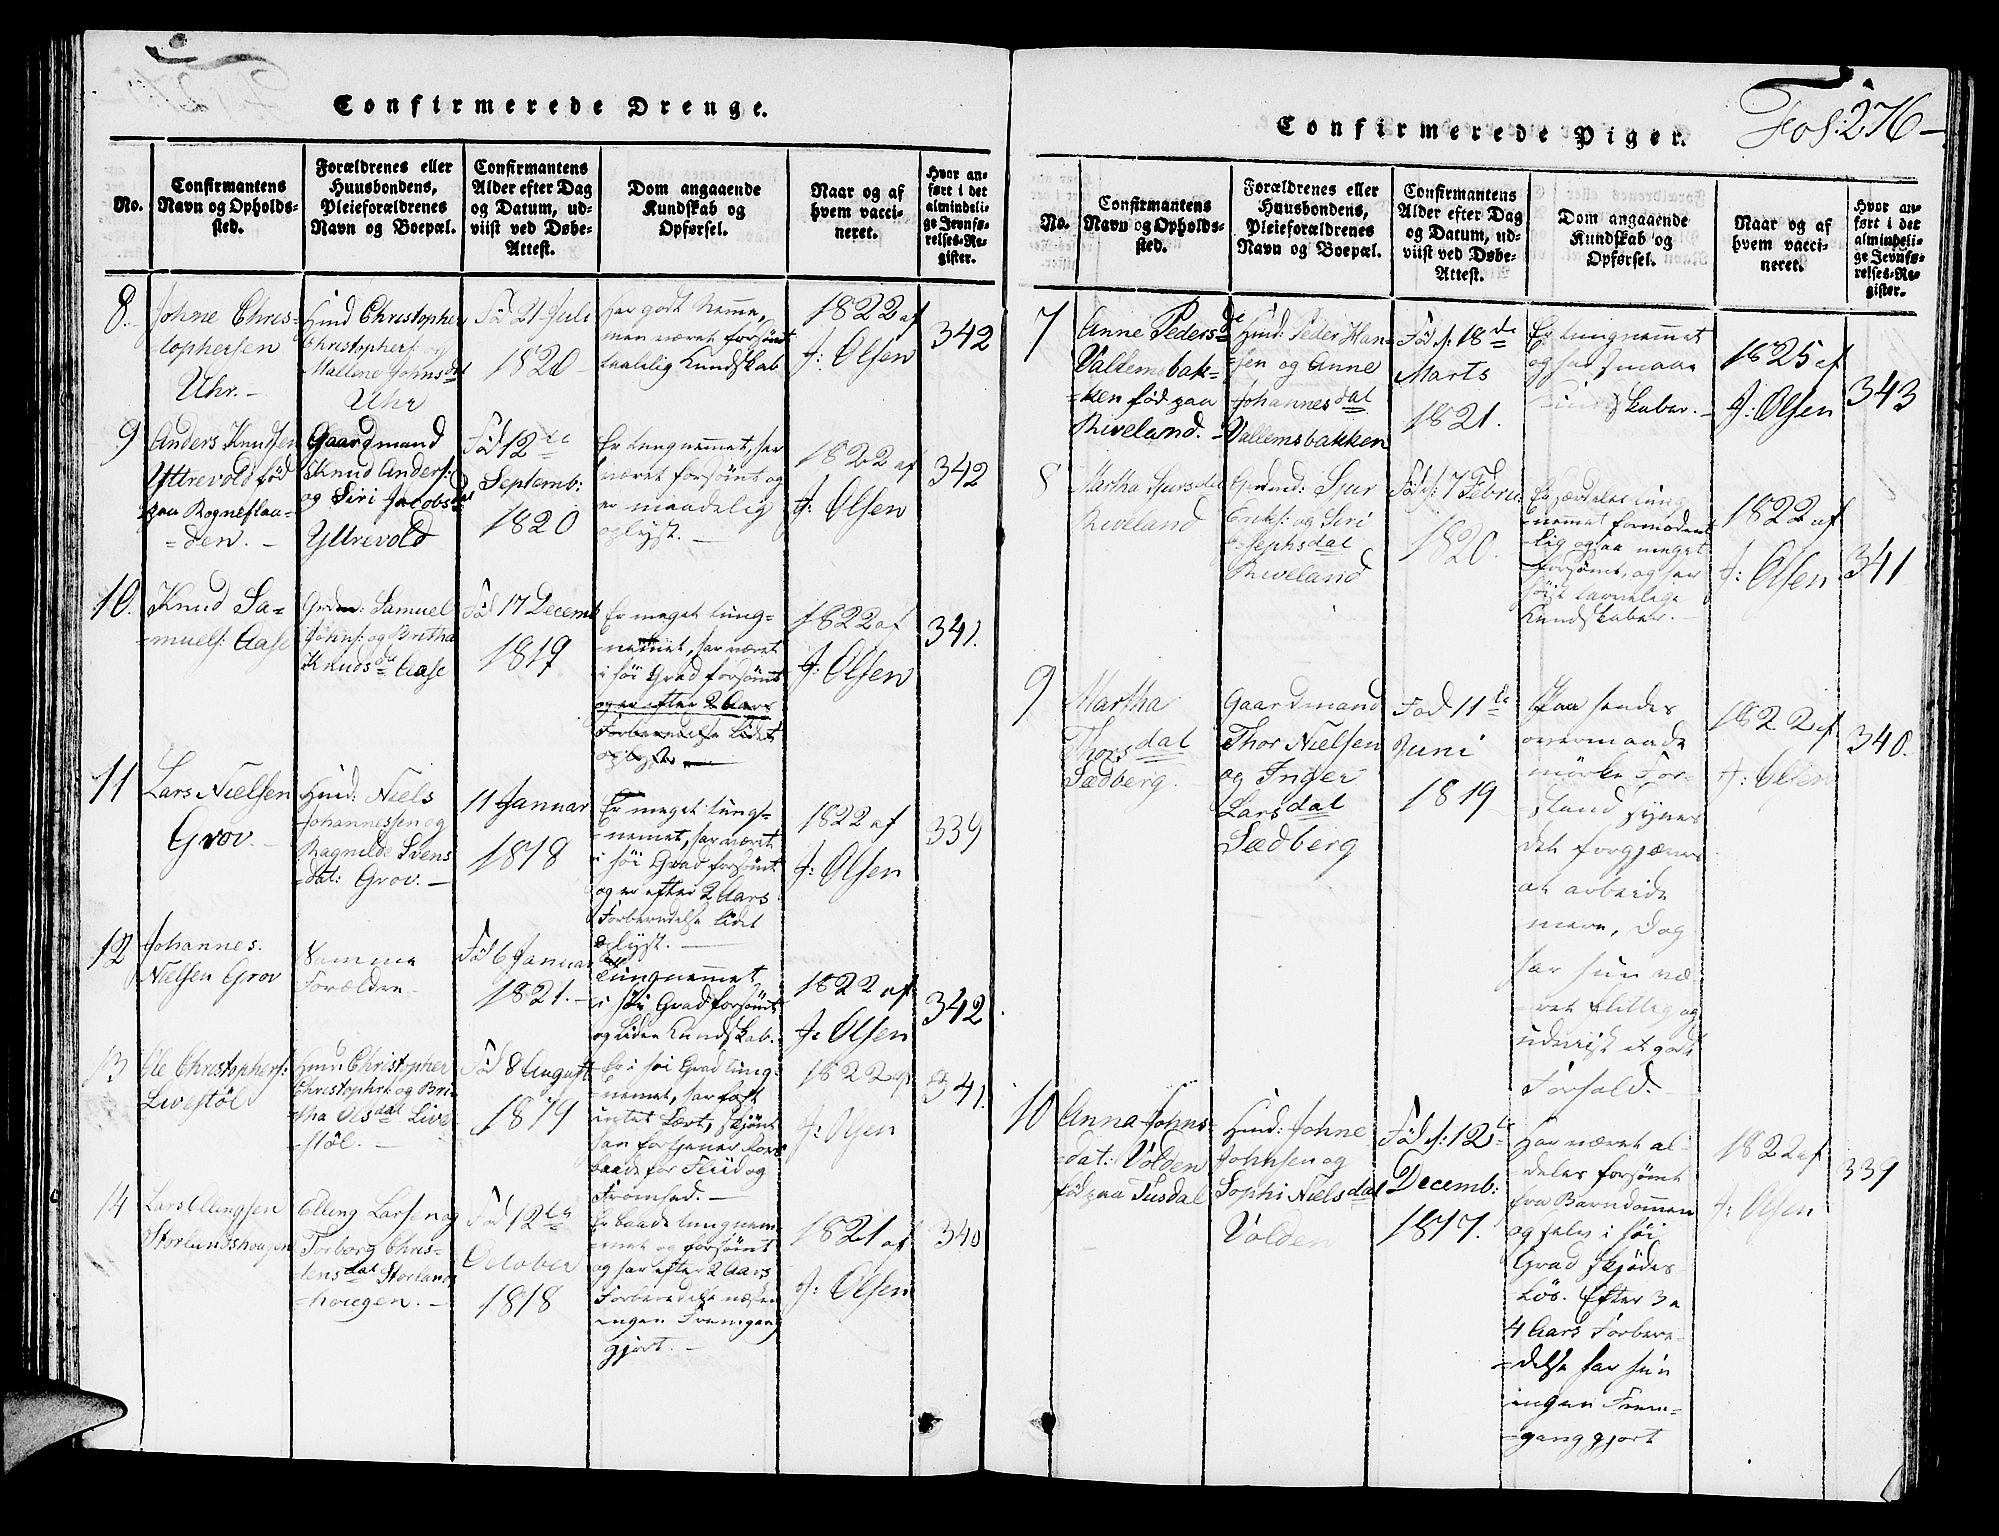 Confirmerede Drenge.
No.
Confirmantens
Navn og Opholds-
sted.
Forældrenes eller
Huusbondens,
Pleieforældrenes
Navn og Boepæl.
Confirmantens
Alder efter Dag
og Datum, ud-
viist ved Døbe-
Attest.
Dom angaaende
Kundskab og
Opførsel.
Naar og af
hvem vacci-
neret.
Hvor an-
ført i det
almindeli-
ge Jevnfø-
relses-Re-
gister.
8.
Johne Chris-
tophersen
Uhr. -
Huusd Christopher
Christophers: og
Mallene Johnsdal
Uhr
Fød 21 Juli
1820
Har godt Nemme,
men været forsømt
taalelig Kundskab
1822 af
J: Olsen
342
9
Anders Knudsen
Yttrevold fød
paa Rogneflaa-
-den. -
Gaardmand
Knud Anders:
og Siri Jacobsdal
Yttrevold
Fød 12te
Septemb:
1820
Er tungnemmet, har
været forsømt og
er maadelig
oplyst. -
1822 af
J: Olsen
342
10.
Knud Sa-
-muels: Aase
Grdmd: Samuel
Johns: og Britha
Knudsda Aase
Fød 17 Decemb
1819
Er meget tung-
nemmet, har været
i høi Grad forsømt
og er efter 2 Aars
Forberedelse lidet
oplyst -
1822 af
J: Olsen
341.
11
Lars Nielsen
Grov. -
Huusd: Niels
Johannessen og
Ragnilde Svens
-dat: Grov. -
11 Januar
1818
Er meget tung-
-nemet, har været
i høi Grad forsømt
og er efter 2 Aars
Forberedelse lidet
oplyst. -
1822 af
J: Olsen
339
12
Johannes
Nielsen Grov
Samme
Forældre
Fød 6 Januar
1821. -
Tungnemmet
i høi Grad forsømt
og liden Kundskab.
1822 af
J: Olsen
342
13
Ole Christophers:
Livestöl
Huusd: Christopher
Christophrs: og Bri-
-tha Olsdal Live
-stöl. -
Fød 8 August
1819
Er i høi Grad tung-
-nemet, har fast
intet Lært, skjønt
han fortjener Roes
baade for Fliid og
Fromhed. -
1822 af
J: Olsen
341.
14
Lars Ellingsen
Storlandshougen
Elling Larsen og
Torborg Chris-
-tensdal Storland
-hougen. -
Fød 12te
October
1818
Er baade tungnem
-met og forsømt
og har efter 2 Aars
Forberedelse næsten
ingen Fremgang
gjort. -
1821 af
J: Olsen
340
Fol: 276 -
Confirmerede Piger.
No.
Confirmantens
Navn og Opholds-
sted.
Forældrenes eller
Huusbondens,
Pleieforældrenes
Navn og Boepæl.
Confirmantens
Alder efter Dag
og Datum, ud-
viist ved Døbe-
Attest.
Dom angaaende
Kundskab og
Opførsel.
Naar og af
hvem vacci-
neret.
Hvor an-
ført i det
almindeli-
ge Jevnfø-
relses-Re-
gister.
7
Anne Pedersde
Vallemsbak-
-ken fød paa
Riveland. -
Huusd: Peder Han-
sen og Anne
Johannesdal
Vallemsbakken
Fød d: 18de
Marts
1821.
Er tungnemmet
og har smaae
Kundskaber. -
1825 af
J: Olsen
343
8
Martha Sjursdal
Riveland
Grdmd: Sjur
Eriks: og Siri
Josephsdal
Riveland
Fød d: 7 Febru
1820.
Er særdeles tung
-nemet formodent
-lig ogsaa meget
forsømt, og har
høist maadelige
Kundskaber. -
1822 af
J: Olsen
341
9
Martha
Thorsdal
Sædberg.
Gaardmand
Thor Nielsen
og Inger
Larsdal
Sædberg
Fød 11te
Juni
1819
Paa hendes
overmaade
mørke For-
stand synes
det forgjæves
at arbeide
mere, Dog
har hun væ
-ret flittig og
udviist et godt
Forhold. -
1822 af
J: Olsen
340.
10
Anna Johns-
-dat: Volden
fød paa Tusdal
Huusd: Johne
Johnsen og
Sophi Nielsdal
Volden
Fød d: 12te
Decemb:
1817.
Har været al-
-deles forsømt
fra Barndommen
og selv i høi
Grad skjødes-
-løs. Efter 3 a
4 Aars Forbere-
-delse har hun
ingen Frem-
-gang gjort
1822 af
J: Olsen
339